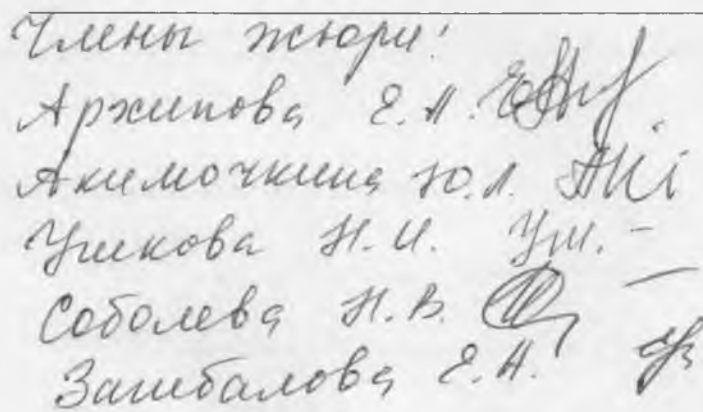 Члены жюри:
Архипова Е.А.
Акимочкина Ю.Л.
Ушкова Н.И. Уш.
Соболева Н.В.
Зашбалова Е.Н.